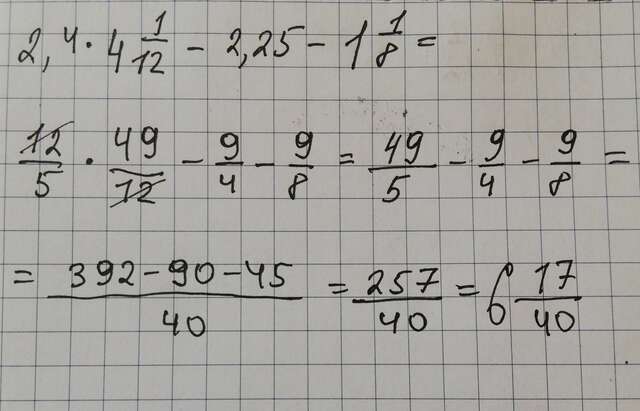 2,4 · 4 1/12 - 2,25 - 1 1/8 =
12/5 · 49/12 - 9/4 - 9/8 = 49/5 - 9/4 - 9/8 =
= (392 - 90 - 45)/40 = 257/40 = 6 17/40